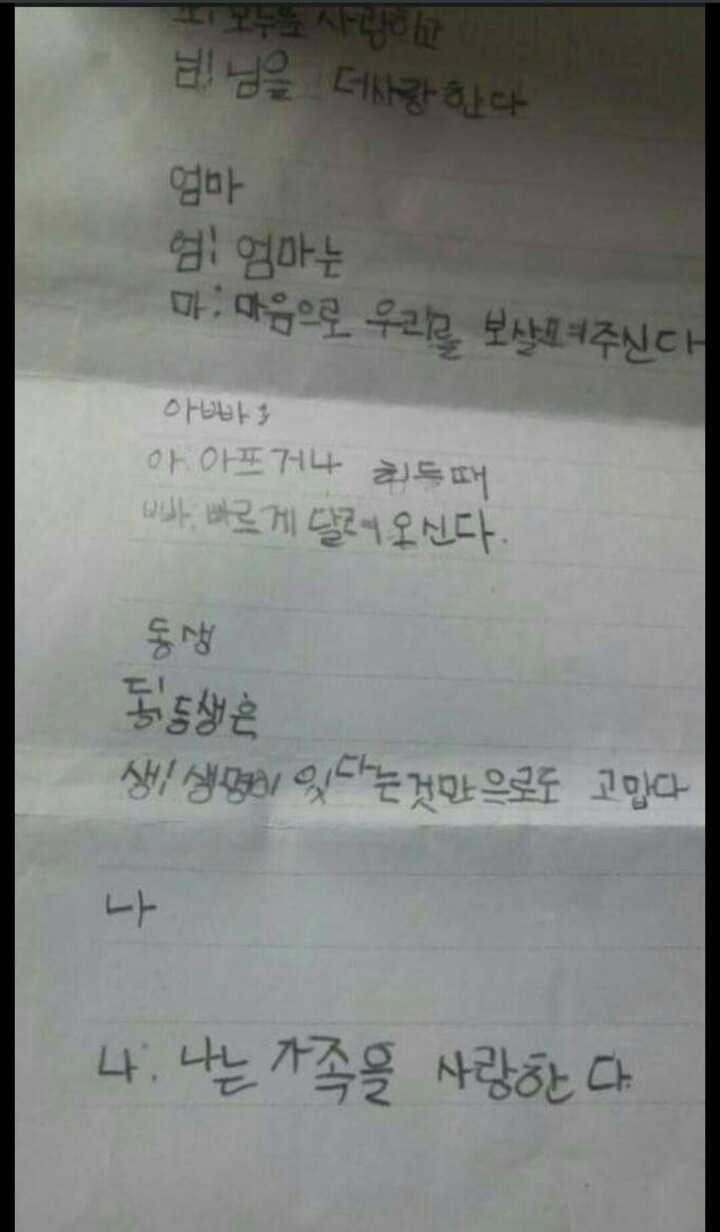 모두를 사랑하고
님! 님을 더사랑한다
엄마
엄! 엄마는
마: 마음으로 우리를 보살펴주신다
아빠
아. 아프거나 힘들때
빠. 빠르게 달려오신다.
동생
동! 동생은
생! 생명이 있다는것만으로도 고맙다
나
나: 나는 가족을 사랑한다